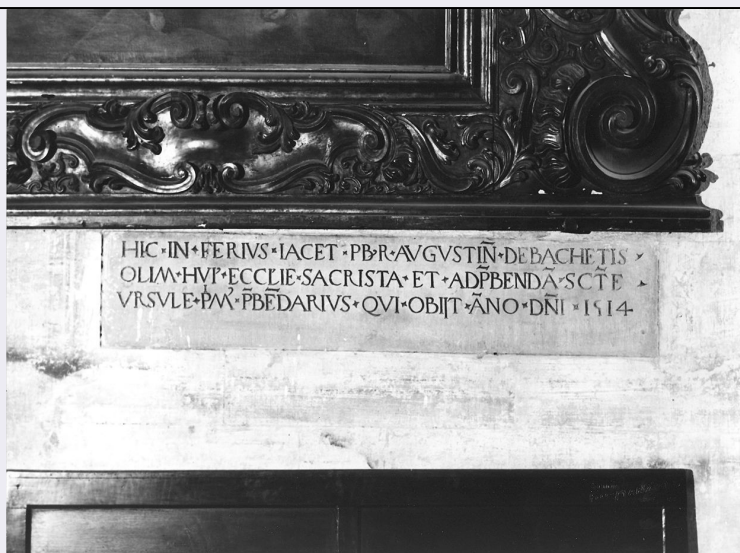 HIC · IN · FERIVS · IACET · PB̵R · AVGVSTIÑ · DEBACHETIS
OLIM · HVI' · ECCLIE · SACRISTA · ET · ADP̃BENDÃ · SCT̃E
VRSVLE · P̃M' · P̃BẼDARIVS · QVI · OBIJT · ÃNO · DÑI · 1514